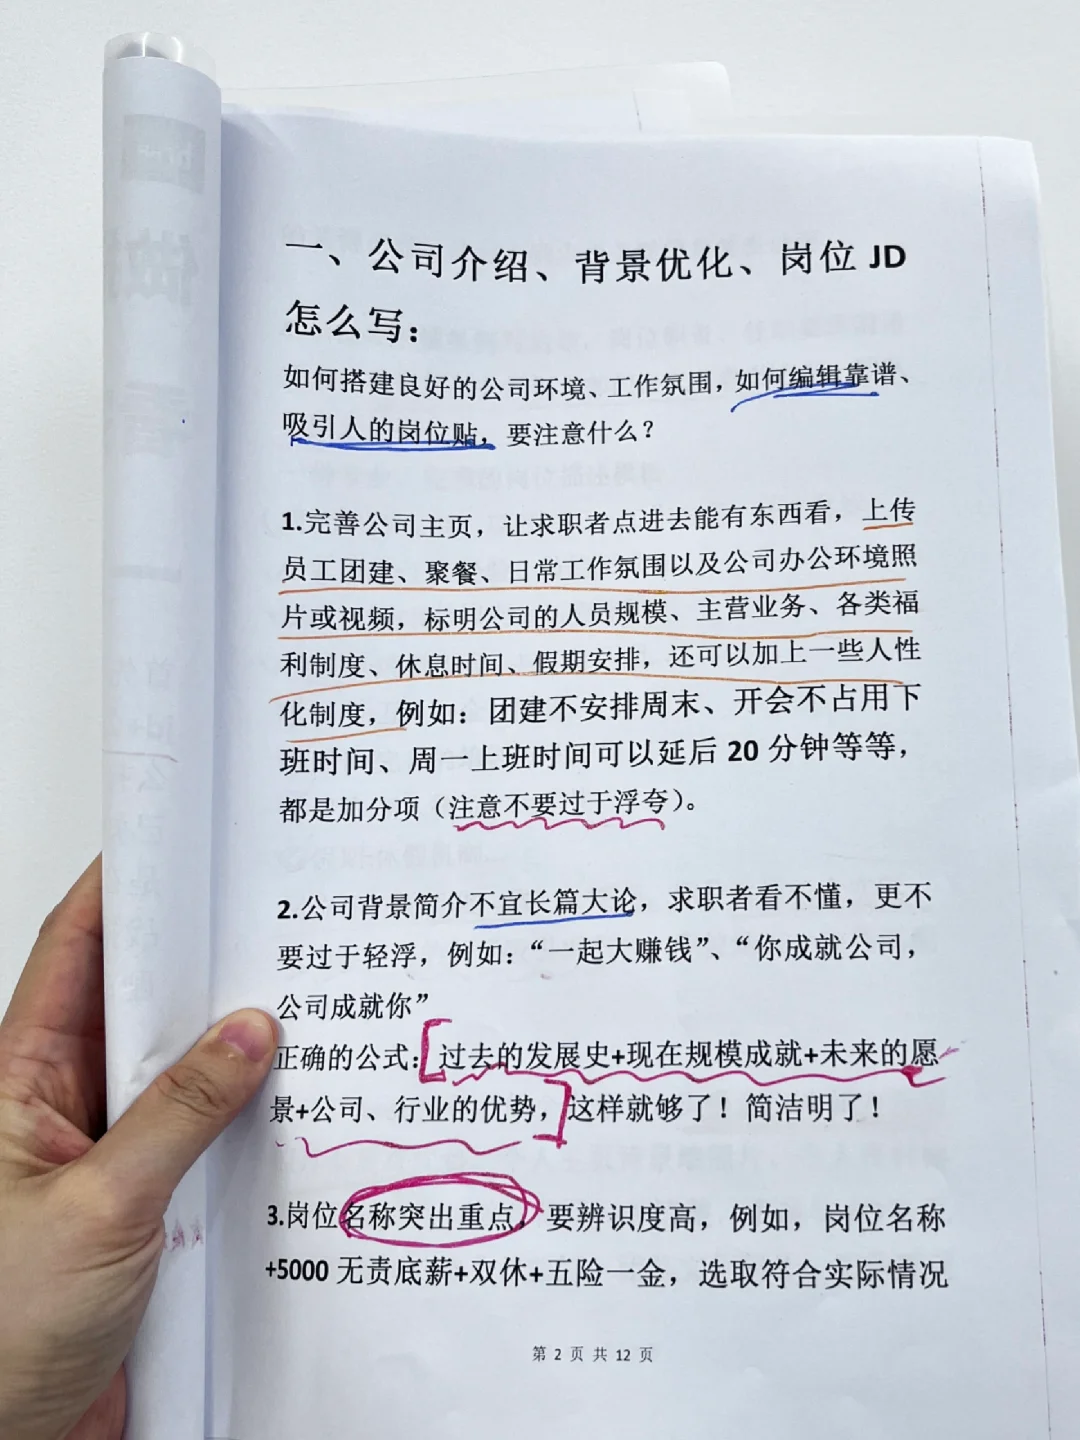 一、公司介绍、背景优化、岗位 JD
怎么写：
如何搭建良好的公司环境、工作氛围，如何编辑靠谱、
吸引人的岗位贴，要注意什么？
1.完善公司主页，让求职者点进去能有东西看，上传
员工团建、聚餐、日常工作氛围以及公司办公环境照
片或视频，标明公司的人员规模、主营业务、各类福
利制度、休息时间、假期安排，还可以加上一些人性
化制度，例如：团建不安排周末、开会不占用下
班时间、周一上班时间可以延后 20 分钟等等，
都是加分项（注意不要过于浮夸）。
2.公司背景简介不宜长篇大论，求职者看不懂，更不
要过于轻浮，例如：“一起大赚钱”、“你成就公司，
公司成就你”
正确的公式：过去的发展史+现在规模成就+未来的愿
景+公司、行业的优势，这样就够了！简洁明了！
3.岗位名称突出重点，要辨识度高，例如，岗位名称
+5000 无责底薪+双休+五险一金，选取符合实际情况
第 2 页 共 12 页